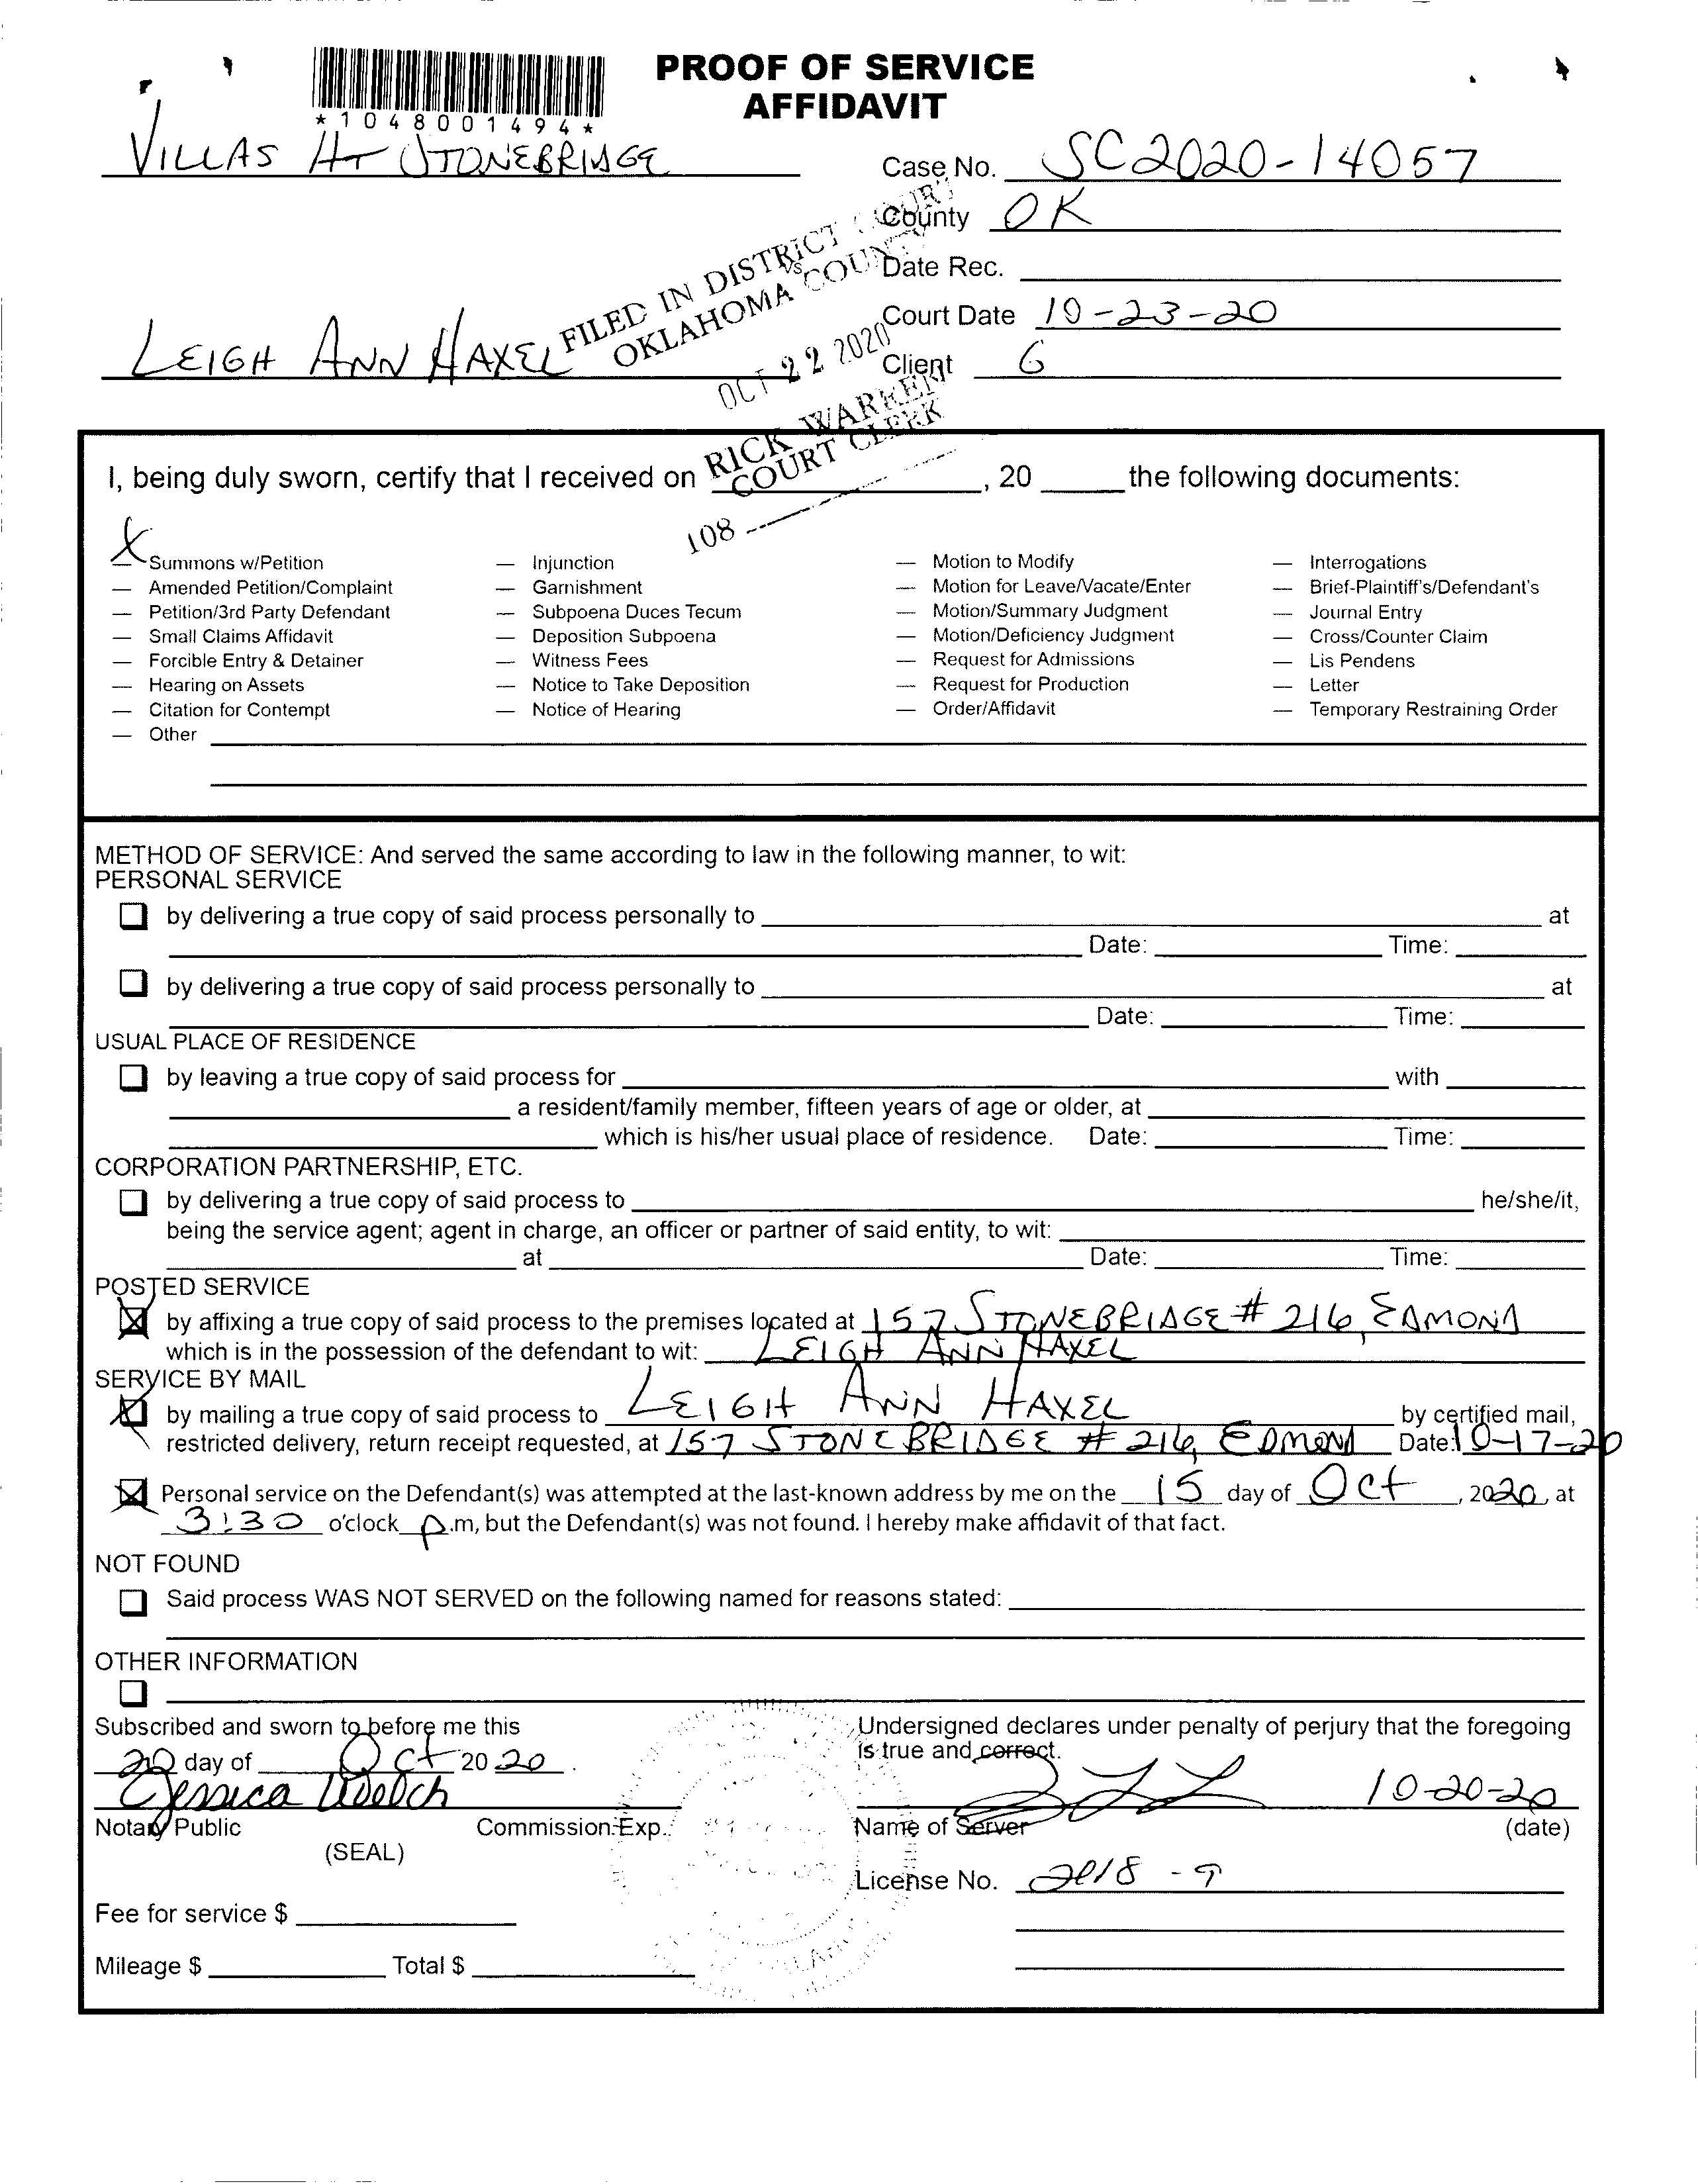 PROOF OF SERVICE
AFFIDAVIT
*1048001494*
VILLAS AT STONEBRIDGE
Case No. SC2020-14057
County OK
vs
Date Rec.
Court Date 10-23-20
LEIGH ANN HAXEL
Client 6
FILED IN DISTRICT COURT
OKLAHOMA COUNTY
OCT 22 2020
RICK WARREN
COURT CLERK
108
I, being duly sworn, certify that I received on , 20 the following documents:
X Summons w/Petition — Injunction — Motion to Modify — Interrogations
— Amended Petition/Complaint — Garnishment — Motion for Leave/Vacate/Enter — Brief-Plaintiff's/Defendant's
— Petition/3rd Party Defendant — Subpoena Duces Tecum — Motion/Summary Judgment — Journal Entry
— Small Claims Affidavit — Deposition Subpoena — Motion/Deficiency Judgment — Cross/Counter Claim
— Forcible Entry & Detainer — Witness Fees — Request for Admissions — Lis Pendens
— Hearing on Assets — Notice to Take Deposition — Request for Production — Letter
— Citation for Contempt — Notice of Hearing — Order/Affidavit — Temporary Restraining Order
— Other
METHOD OF SERVICE: And served the same according to law in the following manner, to wit:
PERSONAL SERVICE
by delivering a true copy of said process personally to at
Date: Time:
by delivering a true copy of said process personally to at
Date: Time:
USUAL PLACE OF RESIDENCE
by leaving a true copy of said process for with
a resident/family member, fifteen years of age or older, at
which is his/her usual place of residence. Date: Time:
CORPORATION PARTNERSHIP, ETC.
by delivering a true copy of said process to he/she/it,
being the service agent; agent in charge, an officer or partner of said entity, to wit:
at Date: Time:
POSTED SERVICE
by affixing a true copy of said process to the premises located at 157 STONEBRIDGE # 216, EDMOND
which is in the possession of the defendant to wit: LEIGH ANN HAXEL
SERVICE BY MAIL
by mailing a true copy of said process to LEIGH ANN HAXEL by certified mail,
restricted delivery, return receipt requested, at 157 STONEBRIDGE # 216, EDMOND Date: 10-17-20
Personal service on the Defendant(s) was attempted at the last-known address by me on the 15 day of Oct, 2020, at
3:30 o'clock p.m, but the Defendant(s) was not found. I hereby make affidavit of that fact.
NOT FOUND
Said process WAS NOT SERVED on the following named for reasons stated:
OTHER INFORMATION
Subscribed and sworn to before me this
20 day of Oct 20 20.
Jessica Welch
Notary Public Commission Exp.
(SEAL)
Undersigned declares under penalty of perjury that the foregoing
is true and correct.
10-20-20
Name of Server (date)
License No. 2018-9
Fee for service $
Mileage $ Total $